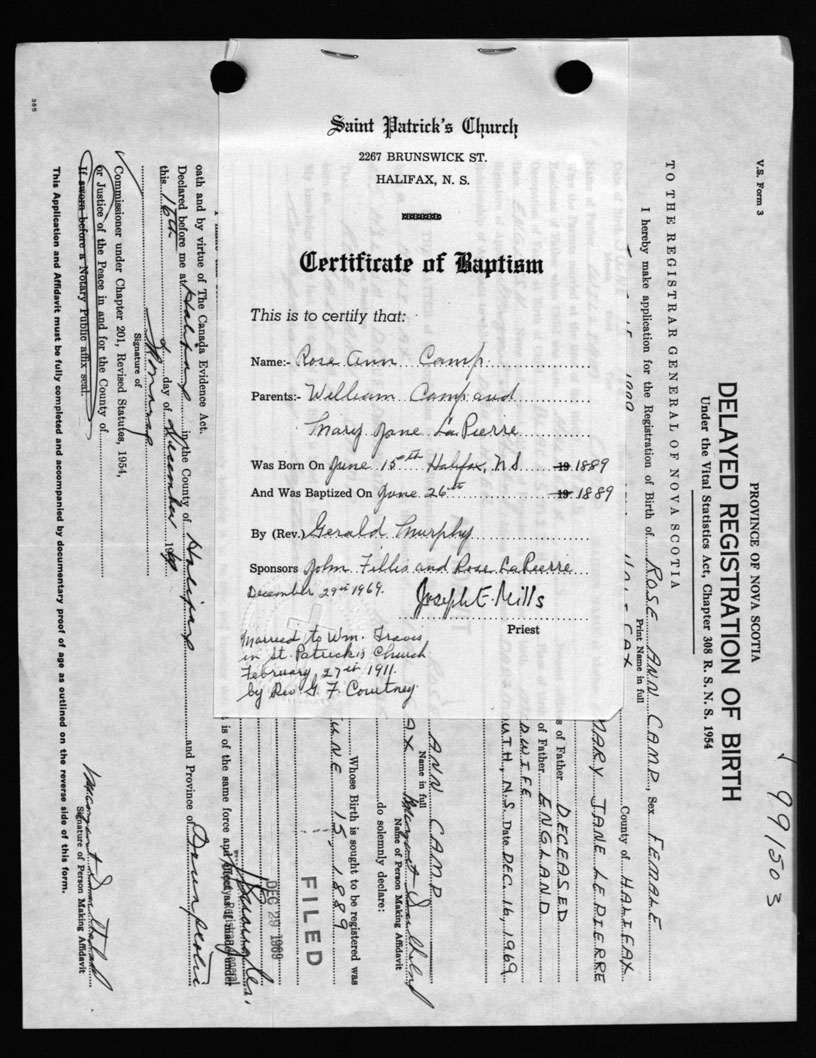 Saint Patrick's Church
2267 BRUNSWICK ST.
HALIFAX, N. S.
Certificate of Baptism
This is to certify that:
Name:- Rose Ann Camp
Parents:- William Camp and
Mary Jane LaPierre
Was Born On June 15th Halifax, N.S. 19 1889
And Was Baptized On June 26th 19 1889
By (Rev.) Gerald Murphy
Sponsors John Fillis and Rose LaPierre
December 29th 1969. Joseph E. Mills
Priest
Married to Wm. Travis
in St. Patrick's Church
February 27th 1911.
by Rev G. F. Courtney
V.S. Form 3
199503
PROVINCE OF NOVA SCOTIA
DELAYED REGISTRATION OF BIRTH
Under the Vital Statistics Act, Chapter 308 R. S. N. S. 1954
TO THE REGISTRAR GENERAL OF NOVA SCOTIA
I hereby make application for the Registration of Birth of ROSE ANN CAMP, Sex FEMALE
Print Name in full
County of HALIFAX
MARY JANE LEPIERRE
of Father DECEASED
of Father ENGLAND
DWIFE
UTH, N.S. Date DEC. 16, 1969
ANN CAMP
Name in full
AX
Name of Person Making Affidavit
do solemnly declare:
Whose Birth is sought to be registered was
UNE 15, 1889
FILED
DEC 29 1969
is of the same force and effect as if made under
oath and by virtue of The Canada Evidence Act.
Declared before me at Halifax in the County of Halifax and Province of Nova Scotia
this 16th day of December 1969
Signature of
Commissioner under Chapter 201, Revised Statutes, 1954,
or Justice of the Peace in and for the County of
If sworn before a Notary Public affix seal.
Signature of Person Making Affidavit
This Application and Affidavit must be fully completed and accompanied by documentary proof of age as outlined on the reverse side of this form.